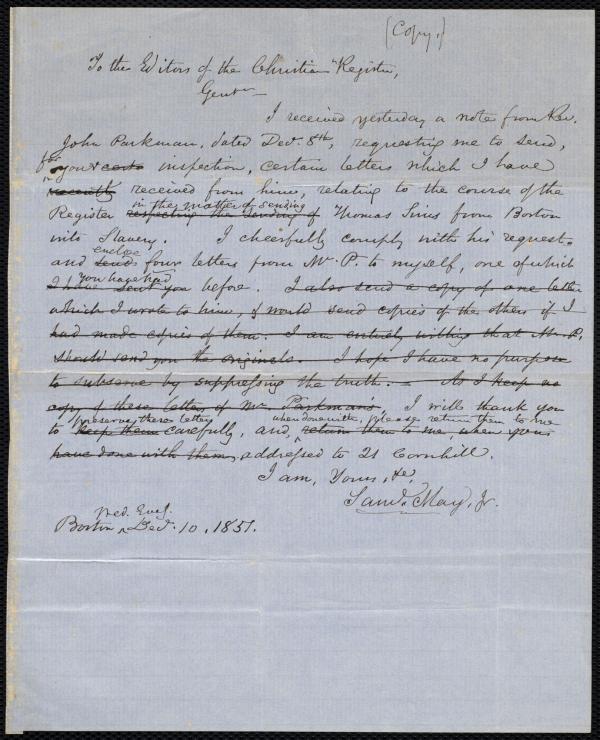 (Copy.)
To the Editors of the Christian Register,
Gentn
I received yesterday a note from Rev.
John Parkman, dated Decr. 8th, requesting me to send,
for your certn inspection, certain letters which I have
recently received from him, relating to the course of the
in the matter of sending
Register respecting the sending of Thomas Sims from Boston
into Slavery. I cheerfully comply with his request,
enclose
and send four letters from Mr. P. to myself, one of which
you have had
I have sent you before. I also send a copy of one letter
which I wrote to him, & would send copies of the others if I
had made copies of them. I am entirely willing that Mr. P.
should send you the originals. I hope I have no purpose
to subserve by suppressing the truth. — As I keep no
copy of these letters of Mr. Parkman's, I will thank you
preserve these letters when done with, please return them to me
to keep them carefully, and, return them to me, when you
have done with them, addressed to 21 Cornhill.
I am, Yours, &c,
Saml. May, Jr.
Wed. Eveg.
Boston, Decr. 10, 1851.